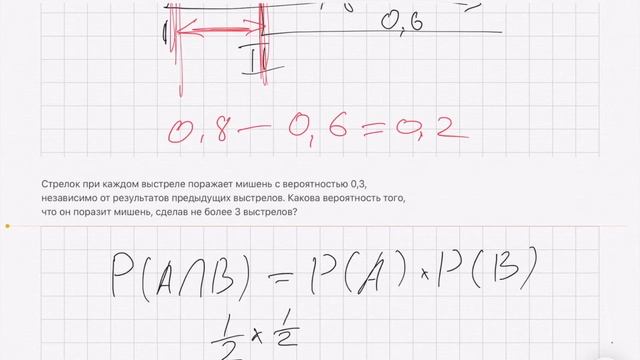 0,6
II
0,8 - 0,6 = 0,2
Стрелок при каждом выстреле поражает мишень с вероятностью 0,3,
независимо от результатов предыдущих выстрелов. Какова вероятность того,
что он поразит мишень, сделав не более 3 выстрелов?
P(A∩B) = P(A) × P(B)
1/2 × 1/2